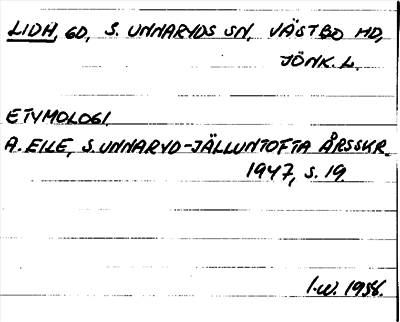 LIDH, GD, S. UNNARYDS SN, VÄSTBO HD,
JÖNK. L.
ETYMOLOGI
A. EILE, S. UNNARYD-JÄLLUNTOFTA ÅRSSKR.
1947, S. 19
I.W. 1958.